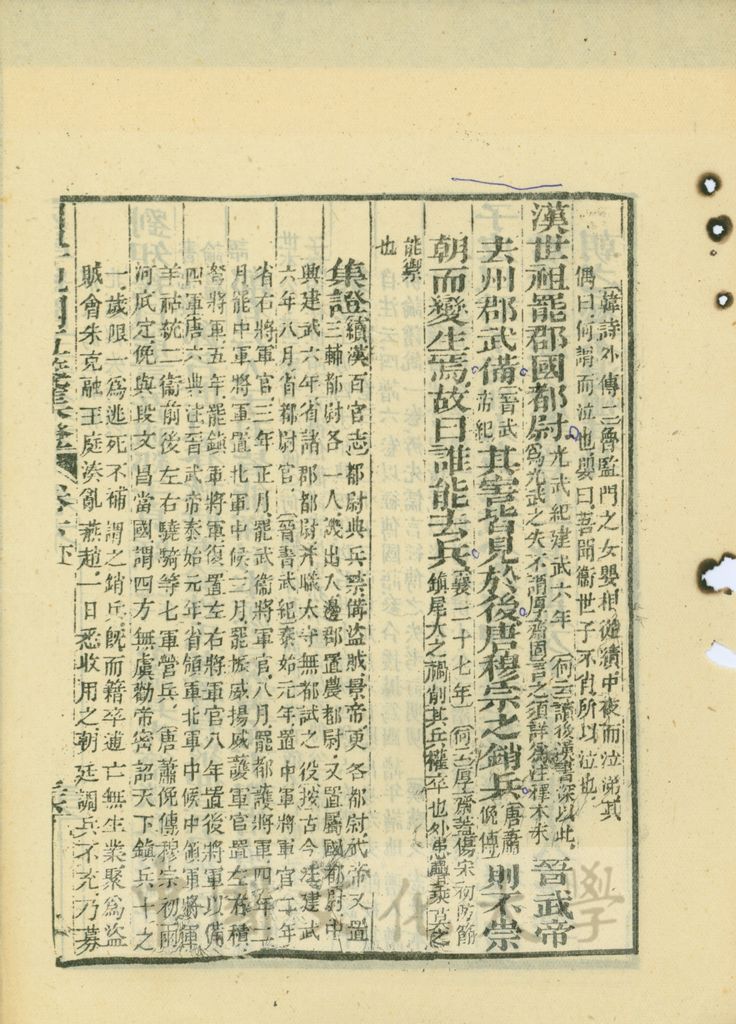 韓詩外傳二魯監門之女嬰相從績中夜而泣涕其
偶曰何謂而泣也嬰曰吾聞衛世子不肖所以泣也
漢世祖罷郡國都尉光武紀建武六年何云讀後漢書深以此爲光武之失不謂厚齋固言之須詳爲注釋本末晉武帝
去州郡武備晉武帝紀其害皆見於後唐穆宗之銷兵唐蕭俛傳則不崇
朝而變生焉故曰誰能去兵襄二十七年何云厚齋蓋傷宋初防節鎮尾大之禍削其兵權卒也外患莫之
能禦
也
集證續漢百官志都尉典兵禁備盜賊景帝更名都尉武帝又置
三輔都尉各一人譏出入邊郡置農都尉又置屬國都尉中
興建武六年省諸郡都尉并職太守無都試之役按古今注建武
六年八月省都尉官 晉書武紀泰始元年置中軍將軍官二年
省右將軍官三年正月罷武衛將軍官八月罷都護將軍四年二
月罷中軍將軍置北軍中候三月罷振威揚威護軍官置左右積
弩將軍五年罷鎮軍將軍復置左右將軍官八年置後將軍以備
四軍唐六典注晉武帝泰始元年省領軍北軍中候中領軍將軍
羊祜統二衛前後左右驍騎等七軍營兵 唐蕭俛傳穆宗初兩
河底定俛與段文昌當國謂四方無虞勸帝密詔天下鎮兵十之
一歲限一爲逃死不補謂之銷兵旣而籍卒逋亡無生業聚爲盜
賊會朱克融王庭湊亂燕趙一日悉收用之朝廷調兵不充乃募
卷十下